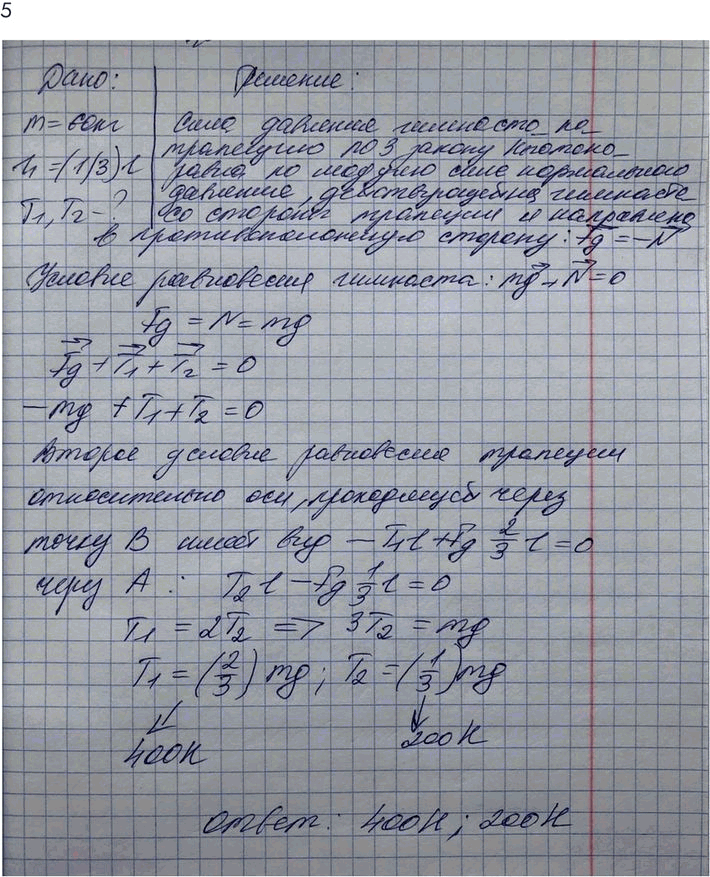 5
Дано: Решение:
m=60кг Сила давления гимнаста на
трапецию по 3 закону Ньютона
l₁=(1/3)l равна по модулю силе нормального
давления, действующей на гимнаста
T₁,T₂-? со стороны трапеции и направлена
в противоположную сторону: Fg=-N
Условие равновесия гимнаста: mg+N=0
Fg=N=mg
Fg+T₁+T₂=0
-mg+T₁+T₂=0
Второе условие равновесия трапеции
относительно оси, проходящей через
точку B имеет вид -T₁l+Fg 2/3 l=0
через A: T₂l-Fg 1/3 l=0
T₁=2T₂ => 3T₂=mg
T₁=(2/3)mg; T₂=(1/3)mg
400Н 200Н
Ответ: 400Н; 200Н